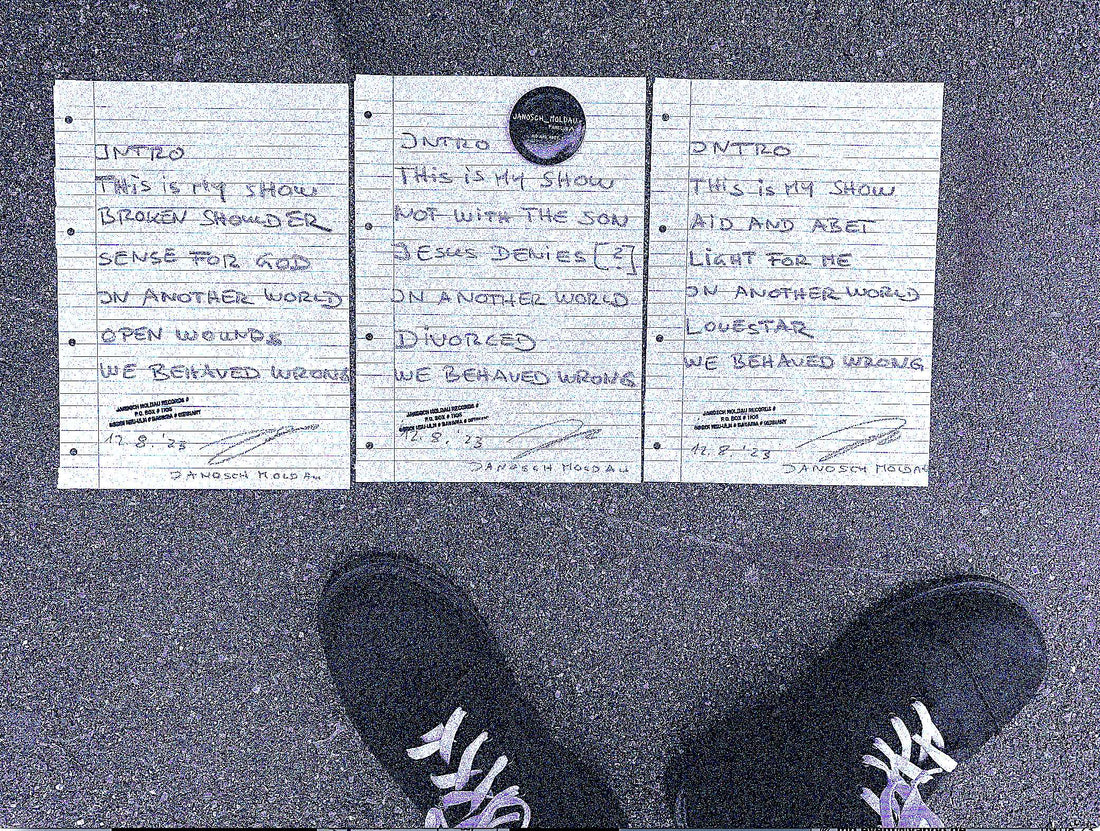 INTRO
THis is MY SHOW
BROKEN SHOULDER
SENSE FOR GOD
IN ANOTHER WORLD
OPEN WOUNDS
WE BEHAVED WRONG
JANOSCH MOLDAU RECORDS #
P.O. BOX # 1106
# BAVARIA # GERMANY
12.8.'23
JANOSCH MOLDAU
JANOSCH_MOLDAU
INTRO
THis is MY SHOW
NOT WITH THE SON
JESUS DENiES [2]
IN ANOTHER WORLD
DiVORCED
WE BEHAVED WRONG
JANOSCH MOLDAU RECORDS #
P.O. BOX # 1106
# BAVARIA # GERMANY
12.8.'23
JANOSCH MOLDAU
INTRO
THis is MY SHOW
AID AND ABET
LiGHT FOR ME
IN ANOTHER WORLD
LOVESTAR
WE BEHAVED WRONG
JANOSCH MOLDAU RECORDS #
P.O. BOX # 1106
# BAVARIA # GERMANY
12.8.'23
JANOSCH MOLDAU